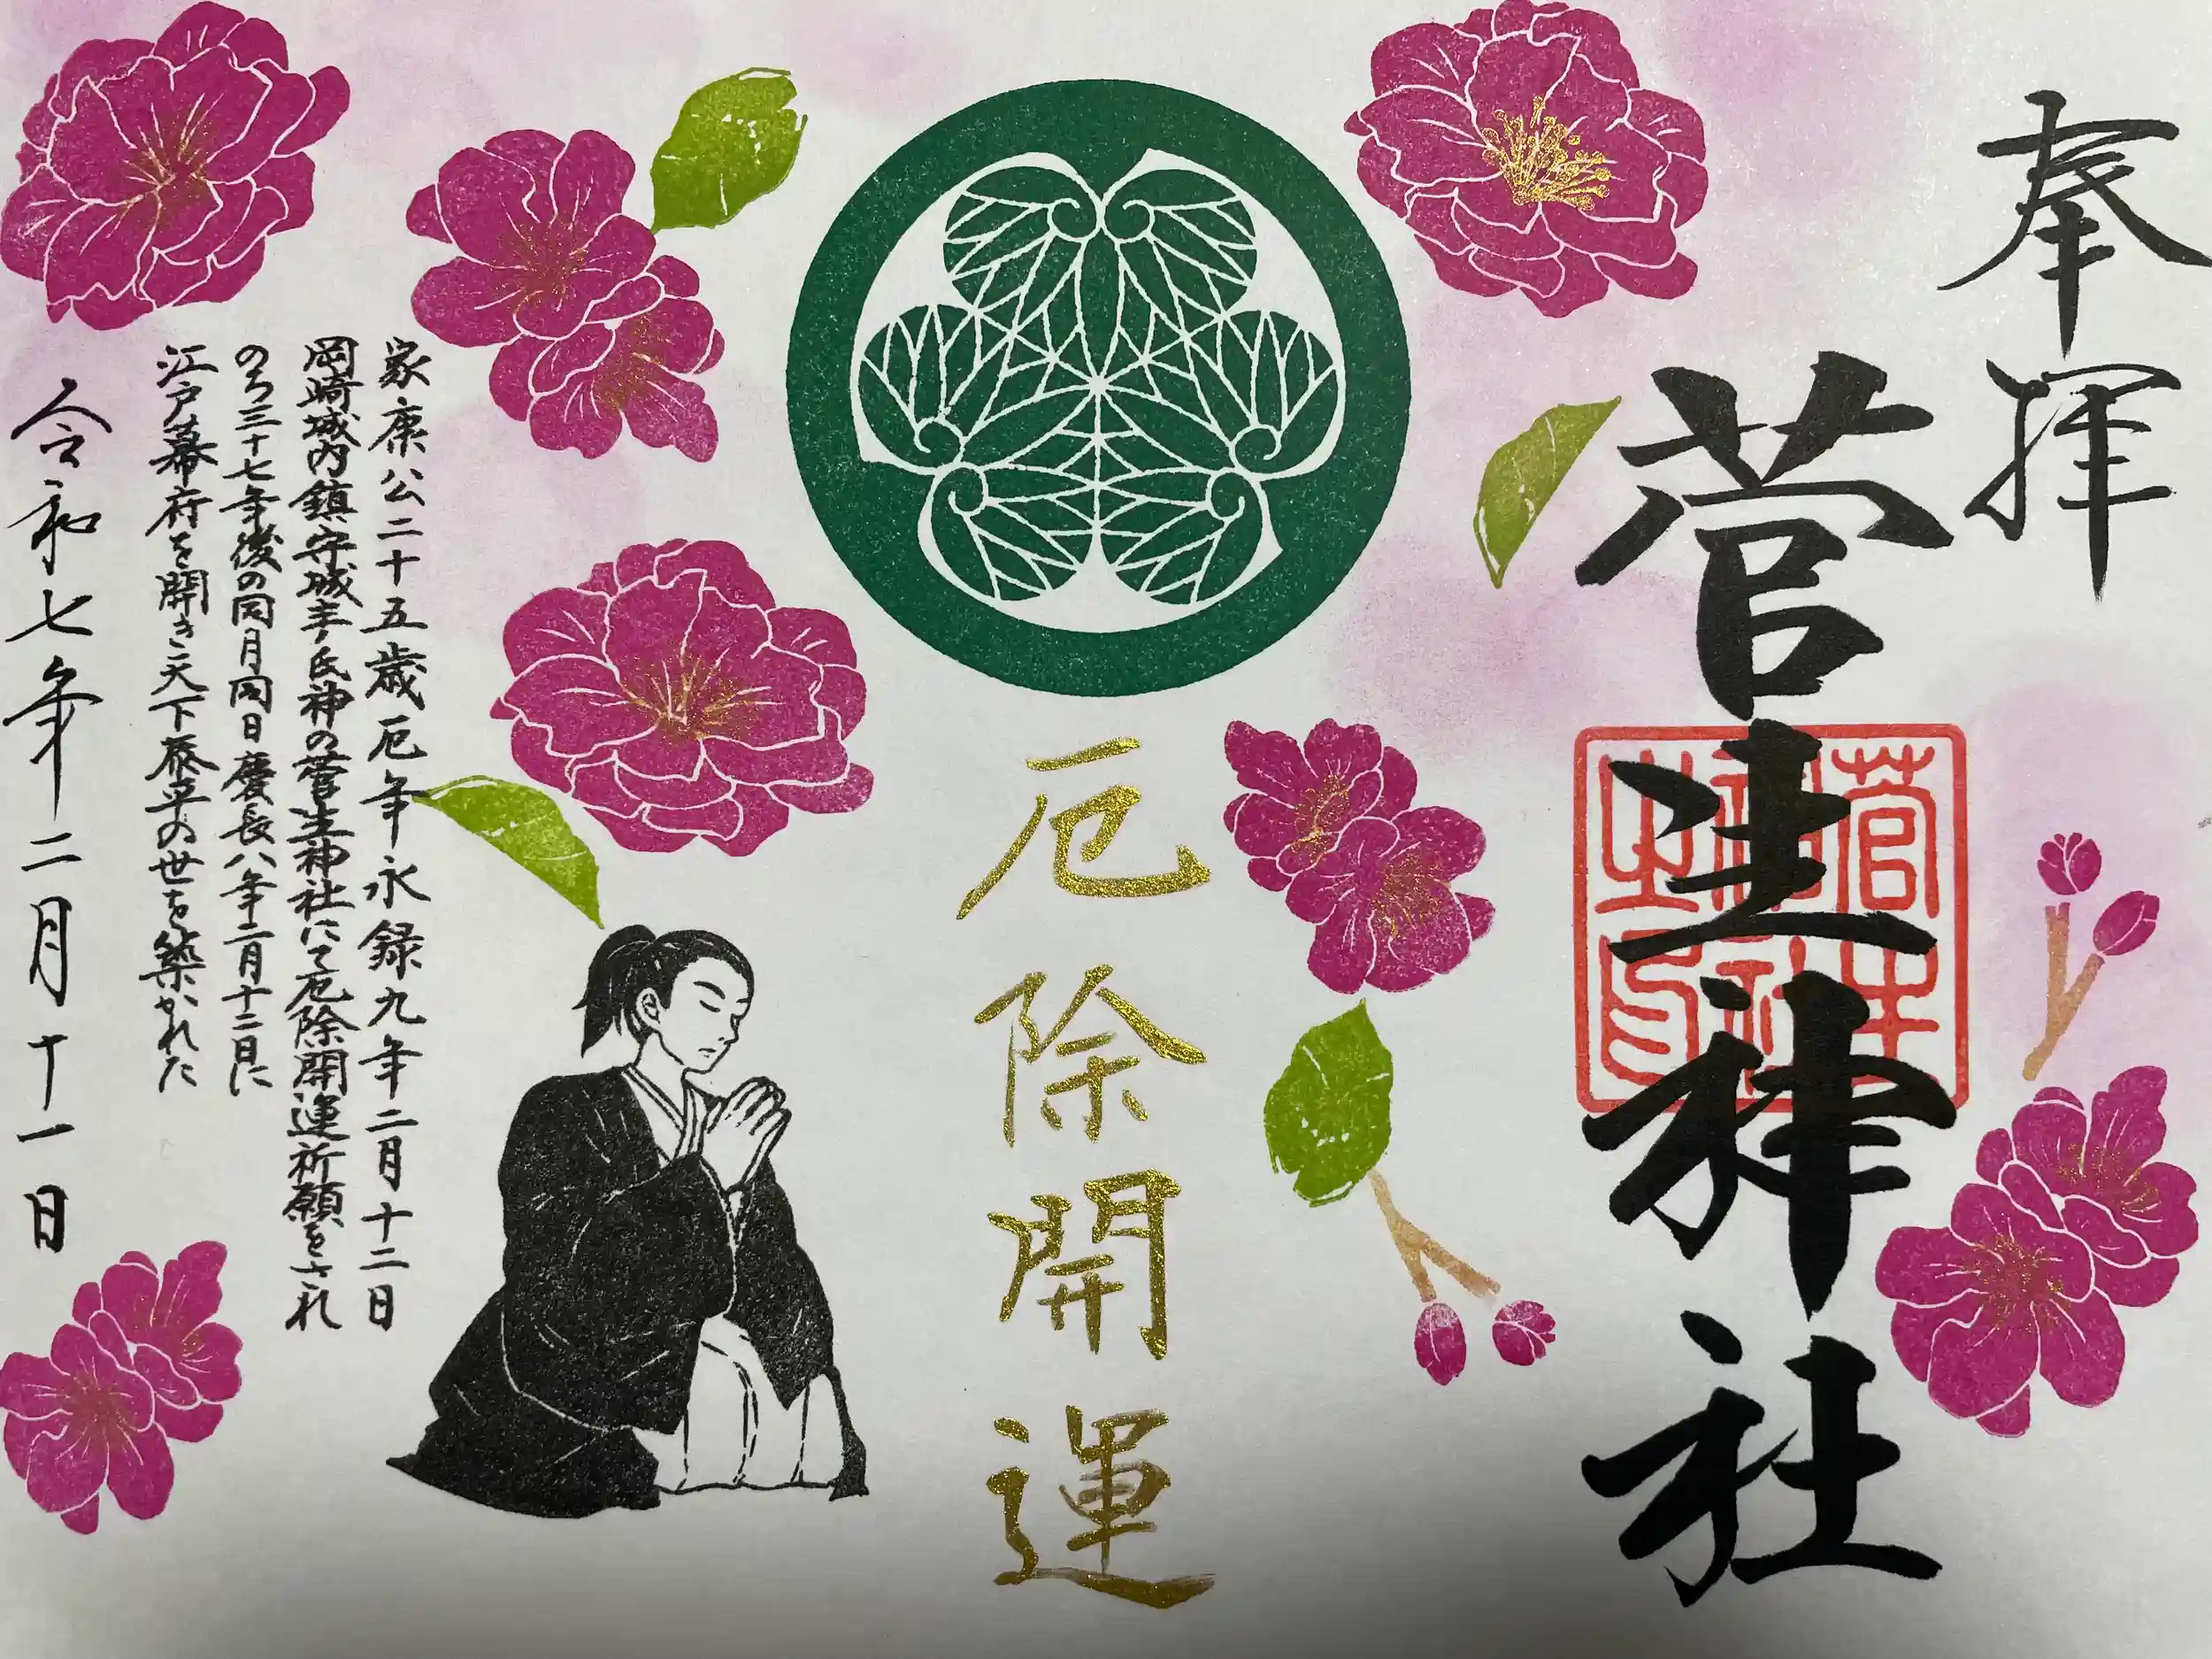 奉拝
菅生神社
菅生神社之印
厄除開運
家康公二十五歳厄年永録九年二月十二日
岡崎城内鎮守城主氏神の菅生神社にて厄除開運祈願をされ
のち三十七年後の同月同日慶長八年二月十二日に
江戸幕府を開き天下泰平の世を築かれた
令和七年二月十一日